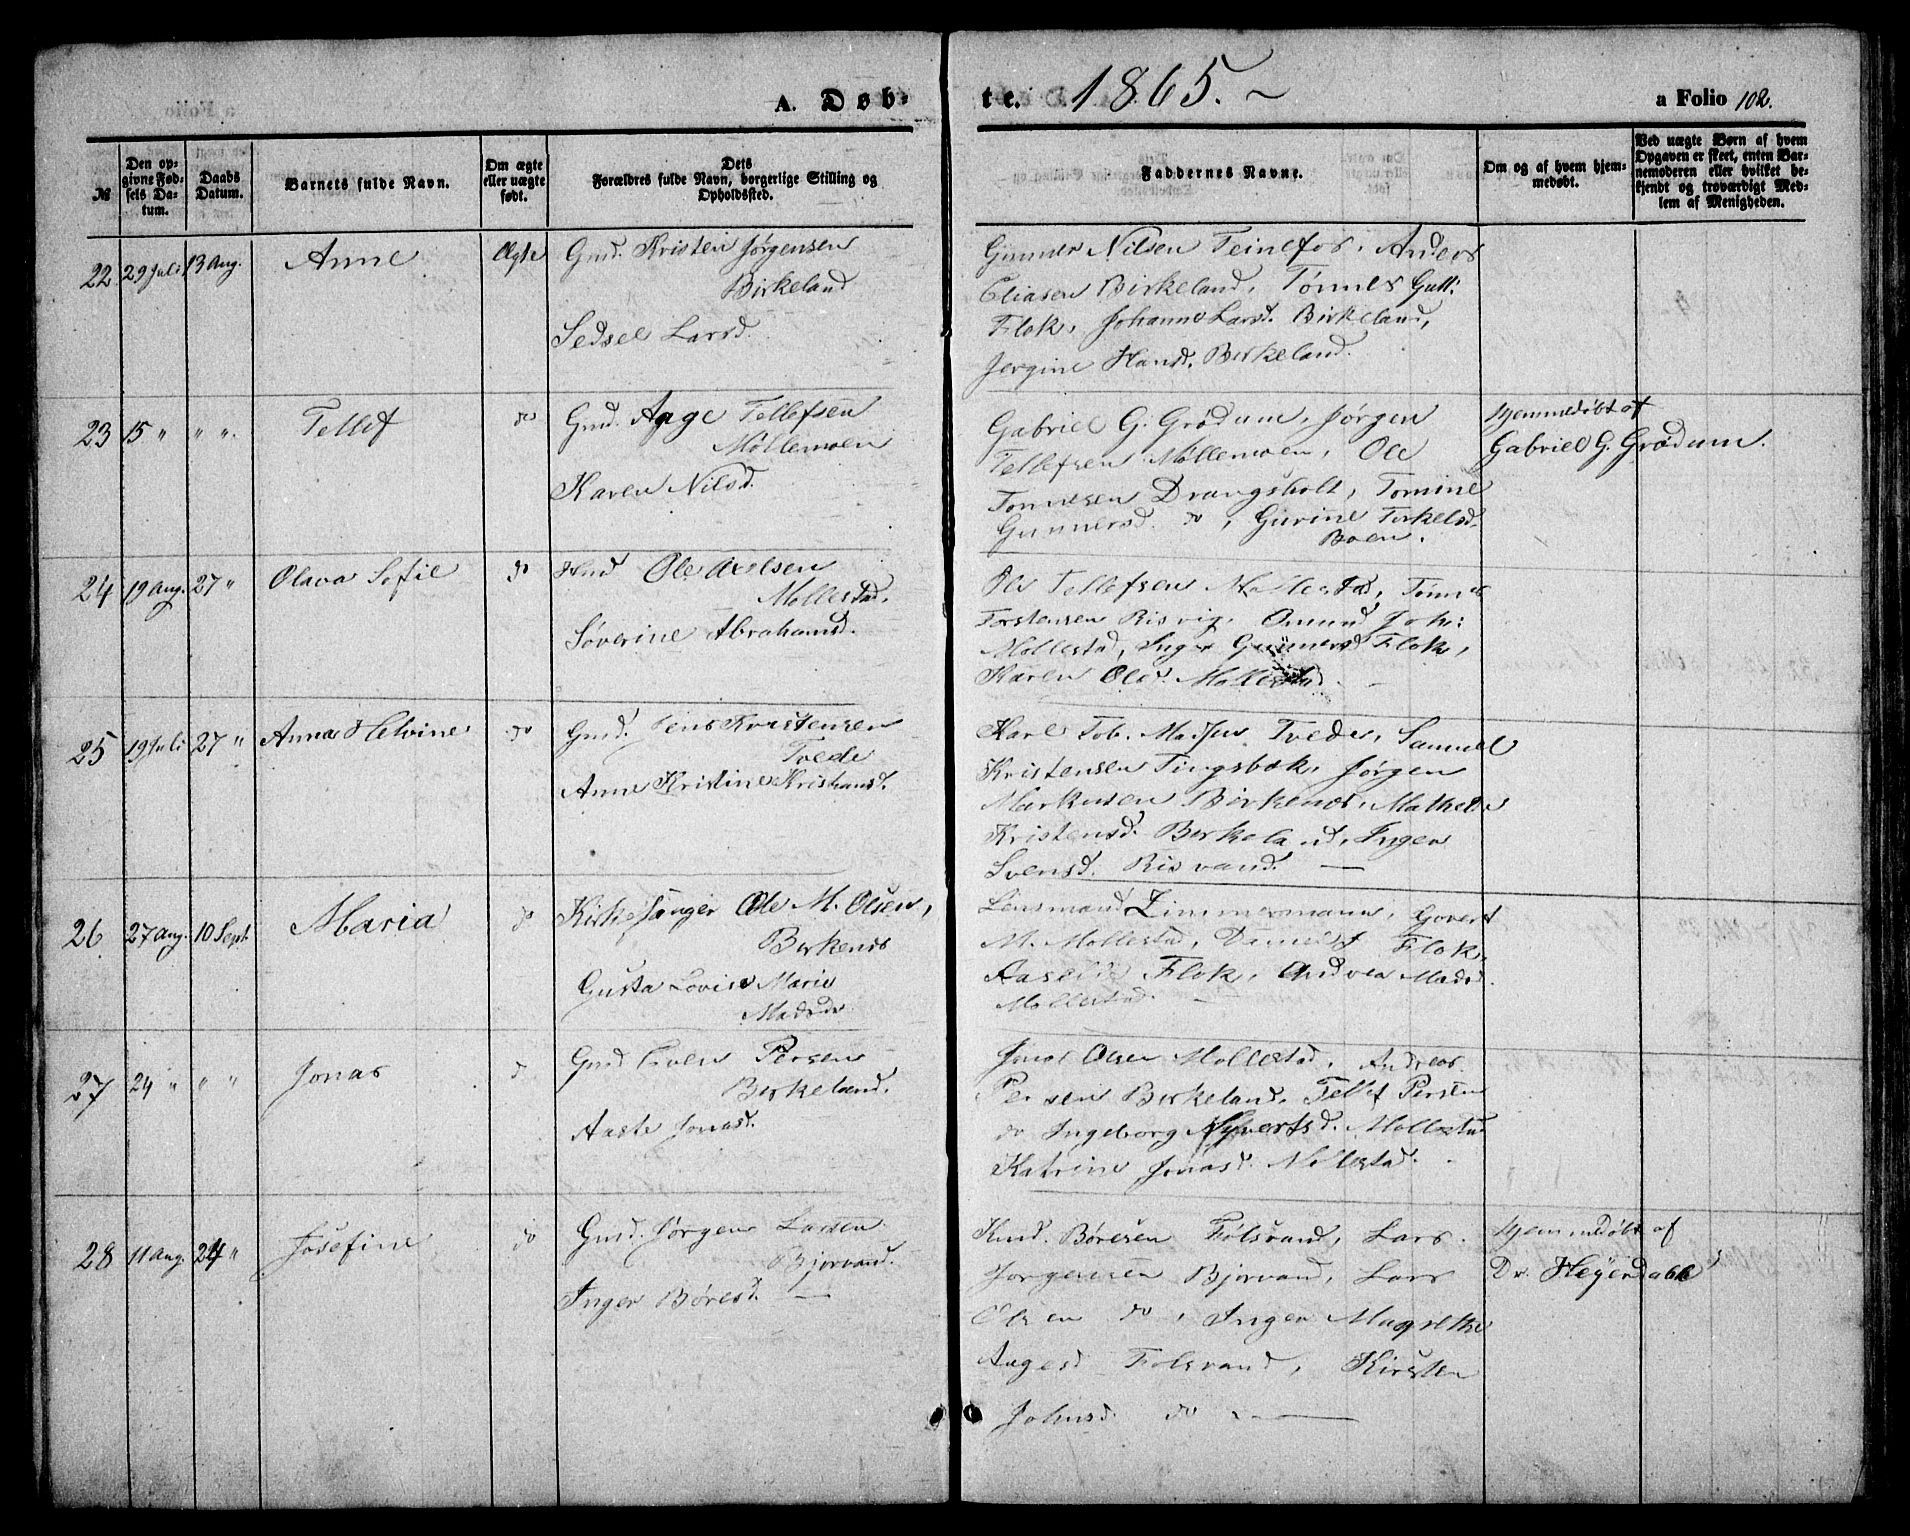 A. Døb-
te. 1865.
a Folio 102.
№
Den op-
givne Fød-
sels Da-
tum.
Daabs
Datum.
Barnets fulde Navn.
Om ægte
eller uægte
født.
Dets
Forældres fulde Navn, borgerlige Stilling og
Opholdssted.
Faddernes Navne.
Om og af hvem hjem-
medøbt.
Ved uægte Børn af hvem
Opgaven er skeet, enten Bar-
nemoderen eller hvilket be-
kjendt og troværdigt Med-
lem af Menigheden.
22 29 Juli 13 Aug. Anne Ægte
Gmd. Kristen Jørgensen
Birkeland
Sedsel Larsd.
Gunner Nilsen Teinefos, Anders
Eliasen Birkeland, Tønnes Gutt:
Flok, Johanne Larsd. Birkeland,
Jorgine Hansd. Birkeland.
23 15 " " ". Tellef do
Gmd. Aage Tellefsen
Møllemoen
Karen Nilsd.
Gabriel G. Grødum, Jørgen
Tellefsen Møllemoen, Ole
Tønnesen Drangsholt, Tomine
Gunnersd. do, Gurine Torkelsd.
Boen.
Hjemmedøbt af
Gabriel G. Grødum.
24 19 Aug. 27 " Olava Sofie do
Ole Axelsen
Mollestad.
Søverine Abrahamsd.
Ole Tellefsen Mollestad, Tønnes
Torstensen Risvig, Omund Joh:
Mollestad, Inger Gunnersd Flok,
Karen Olsd. Mollestad.
25 19 Juli 27 " Anna Helvine do
Gmd. Jens Kristensen
Tvede
Anne Kristine Kristiansd.
Karl Tob. Tvede, Samuel
Kristensen Tingsbæk, Jørgen
Markusen Birkenes, Mathea
Kristensd. Birkeland, Inger
Svensd. Risvand. —
26 27 Aug. 10 Sept. Maria do
Kirkesanger Ole M. Olsen,
Birkenes
Gusta Lovise Marie
Madsd.
Lensmand Zimmermann, Govert
M. Mollestad, Daniel J Flok,
Flok, Andrea Madsd.
Mollestad. —
27 24 " " " Jonas d
Gmd Sven Persen
Birkeland.
Aaste Jonasd.
Jonas Olsen Mollestad, Andreas
Persen Birkeland, Tellef Persen
do Ingeborg Syvertsd. Mollestad
Katrine Jonasd. Mollestad.
28 11 Aug. 24 " Josefine do
Gmd. Jørgen Larsen
Bjorvand.
Inger Børesd. —
Knud. Børesen Følsvand, Lars
Jørgensen Bjorvand, Lars
Olsen do, Inger Magrethe
Aagesd Følsvand, Kirsten
Johnsd. do —
Hjemmedøbt af
Dr. Heyerdahl